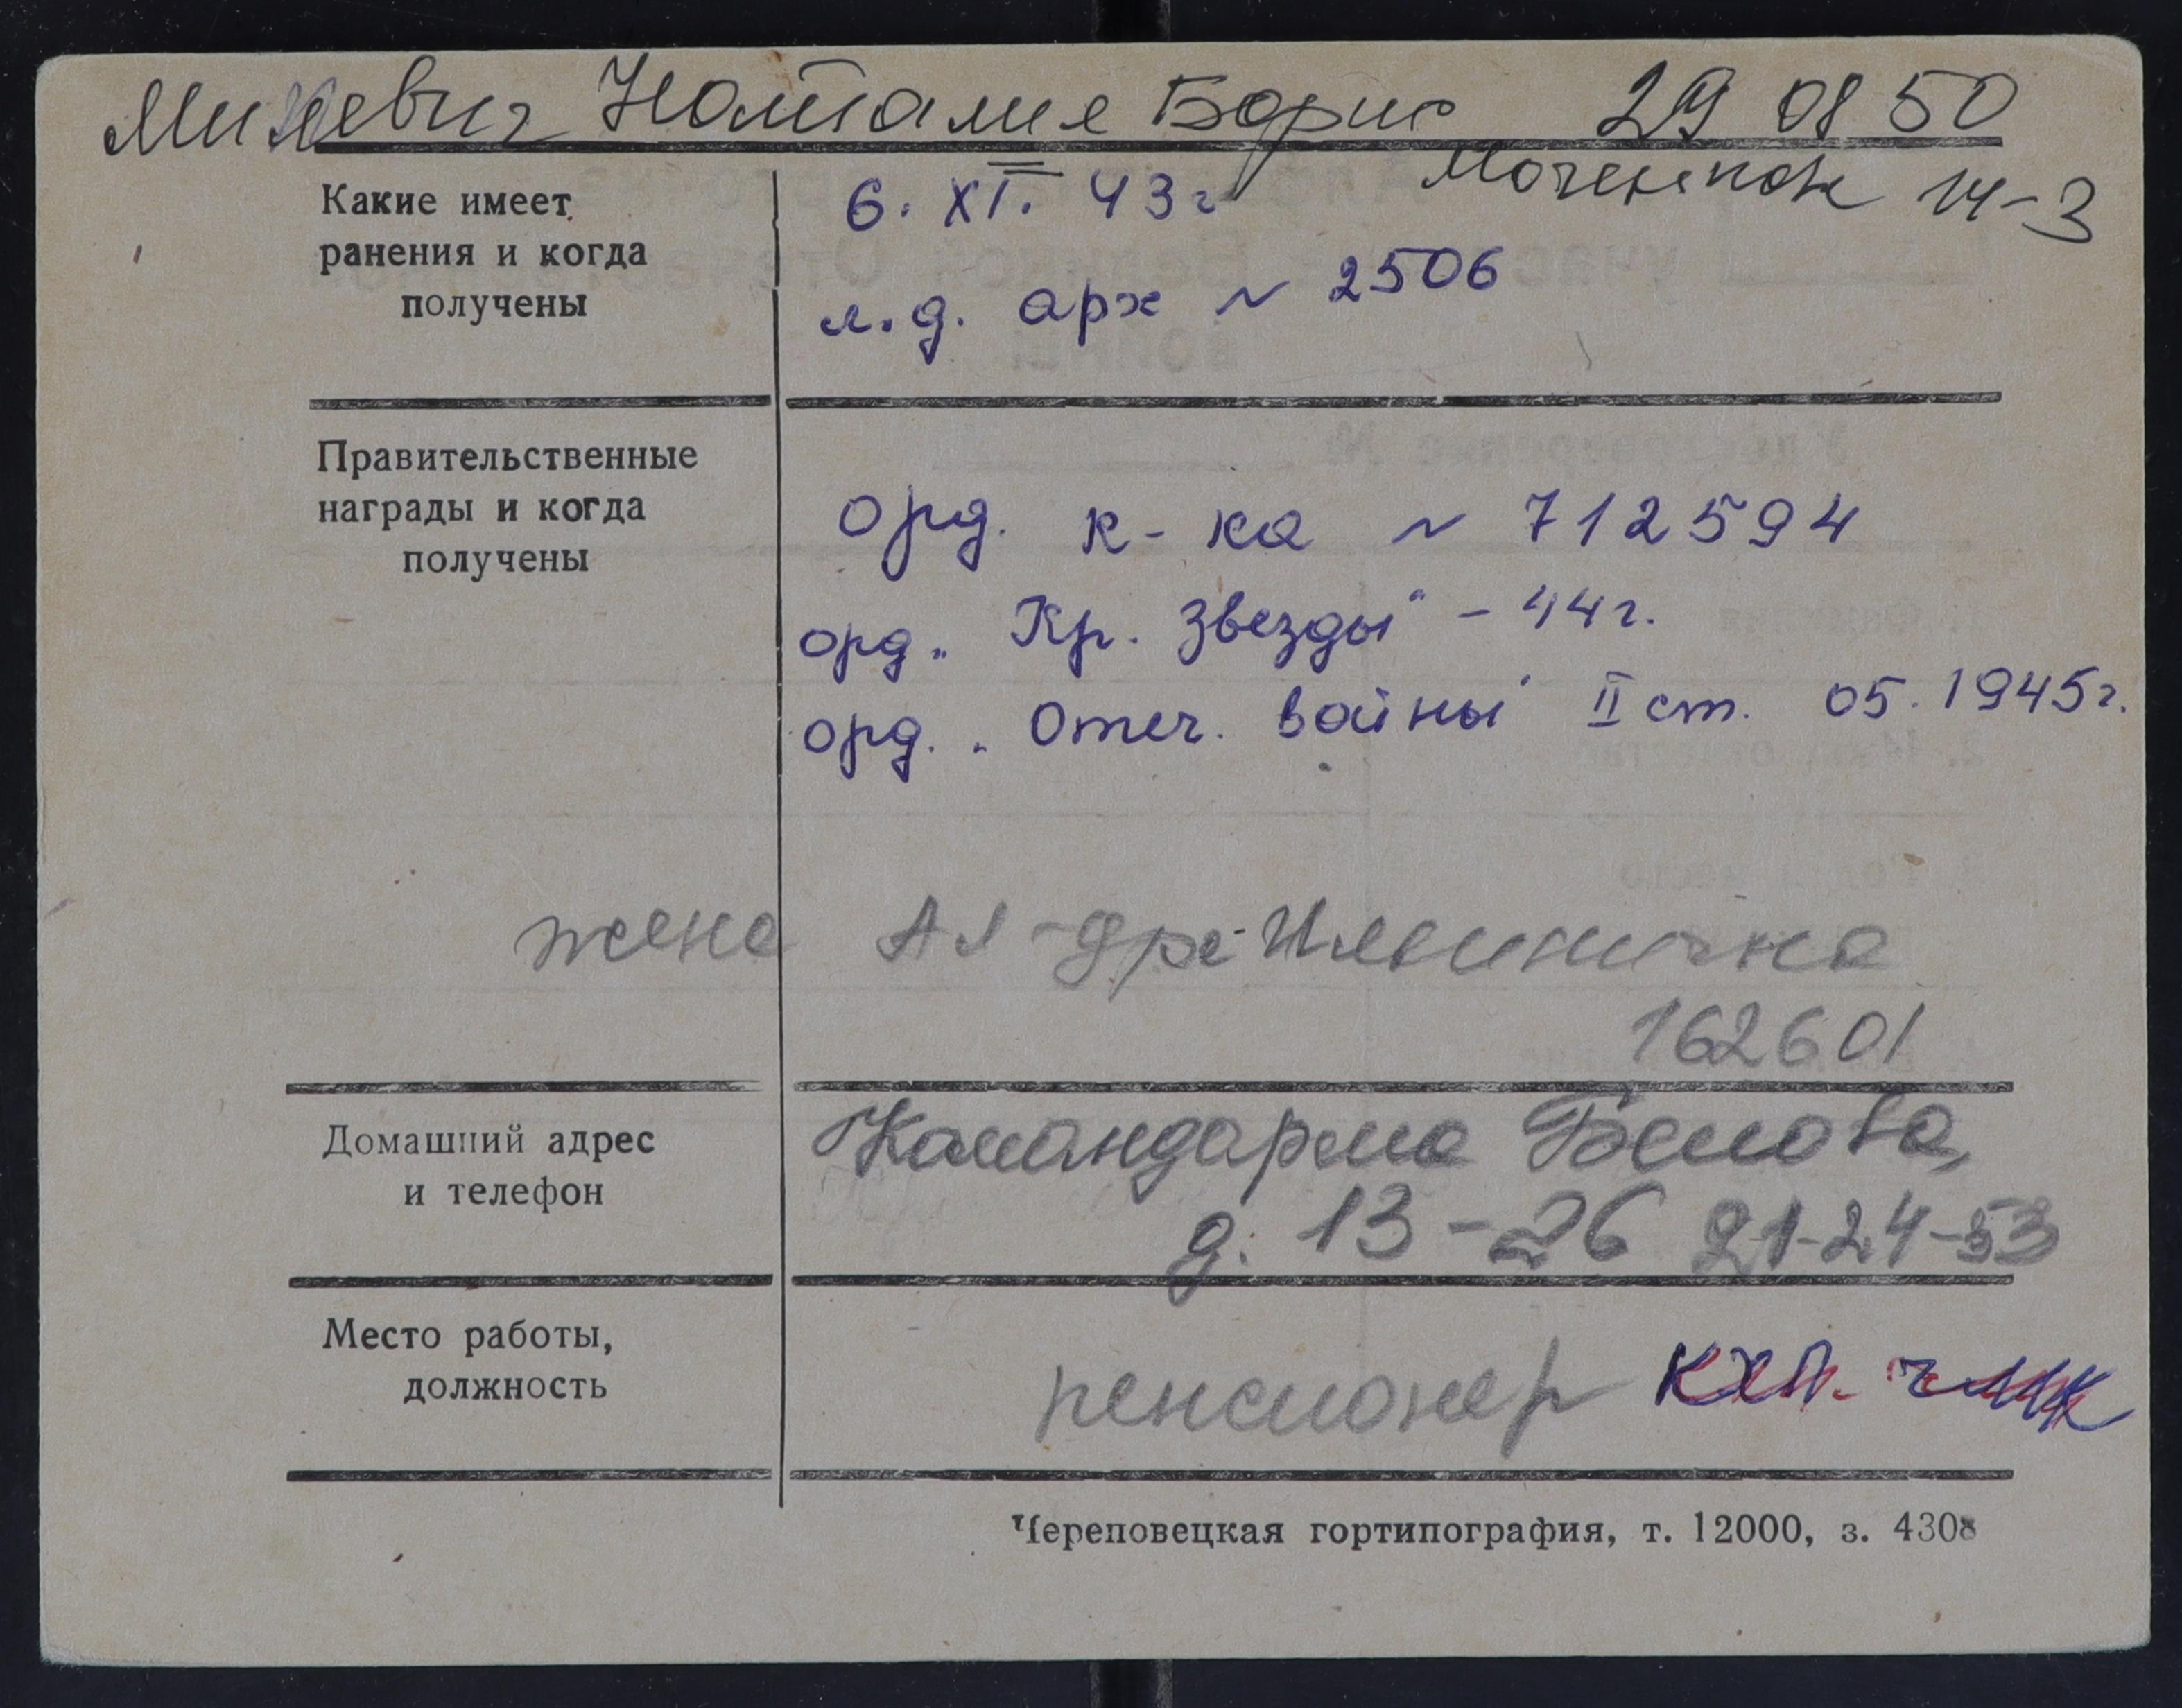 Наталия Борис 29 08 50
Моченкова 14-3
Какие имеет
ранения и когда
получены
6. XI. 43г
л.д. арх № 2506
Правительственные
награды и когда
получены
орд. к-ка № 712594
орд. "Кр. Звезды" - 44г.
орд. "Отеч. войны" II ст. 05. 1945г.
жена Ал-дра Ильинична
162601
Домашний адрес
и телефон
Командарма Белова,
д. 13-26 21-24-53
Место работы,
должность
пенсионер КХП ЧМК
Череповецкая гортипография, т. 12000, з. 4308